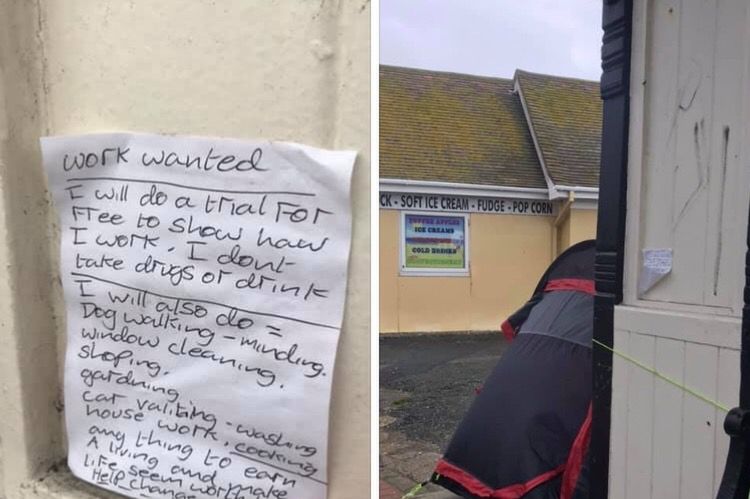 work wanted
I will do a trial For
Free to show haw
I work. I dont
take drugs or drink
I will also do =
Dog walking - minding.
window cleaning.
shoping.
gardning
car valiting - washing
house work, cooking
any thing to earn
A living and make
Life seem worth
Help change
CK - SOFT ICE CREAM - FUDGE - POP CORN
TOFFEE APPLES
ICE CREAMS
COLD DRINKS